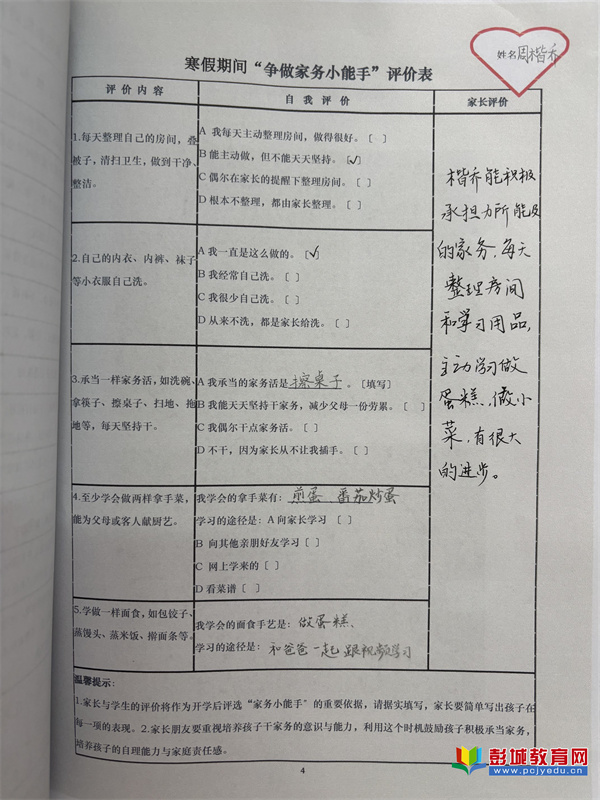 姓名周楷乔
寒假期间“争做家务小能手”评价表
评价内容
自我评价
家长评价
1.每天整理自己的房间，叠
被子，清扫卫生，做到干净、
整洁。
A 我每天主动整理房间，做得很好。〔 〕
B 能主动做，但不能天天坚持。〔√〕
C 偶尔在家长的提醒下整理房间。〔 〕
D 根本不整理，都由家长整理。〔 〕
2.自己的内衣、内裤、袜子
等小衣服自己洗。
A 我一直是这么做的。〔√〕
B 我经常自己洗。〔 〕
C 我很少自己洗。〔 〕
D 从来不洗，都是家长给洗。〔 〕
3.承当一样家务活，如洗碗、
拿筷子、擦桌子、扫地、拖
地等，每天坚持干。
A 我承当的家务活是擦桌子。〔填写〕
B 我能天天坚持干家务，减少父母一份劳累。〔 〕
C 我偶尔干点家务活。〔 〕
D 不干，因为家长从不让我插手。〔 〕
4.至少学会做两样拿手菜，
能为父母或客人献厨艺。
我学会的拿手菜有：煎蛋 番茄炒蛋
学习的途径是：A 向家长学习 〔 〕
B 向其他亲朋好友学习〔 〕
C 网上学来的〔 〕
D 看菜谱〔 〕
5.学做一样面食，如包饺子、
蒸馒头、蒸米饭、擀面条等。
我学会的面食手艺是：做蛋糕、
学习的途径是：和爸爸一起跟视频学习
楷乔能积极
承担力所能及
的家务，每天
整理房间
和学习用品，
主动学习做
蛋糕，做小
菜，有很大
的进步。
温馨提示：
1.家长与学生的评价将作为开学后评选“家务小能手”的重要依据，请据实填写，家长要简单写出孩子在
每一项的表现。2.家长朋友要重视培养孩子干家务的意识与能力，利用这个时机鼓励孩子积极承当家务，
培养孩子的自理能力与家庭责任感。
4
彭城教育网
www.pcjyedu.com